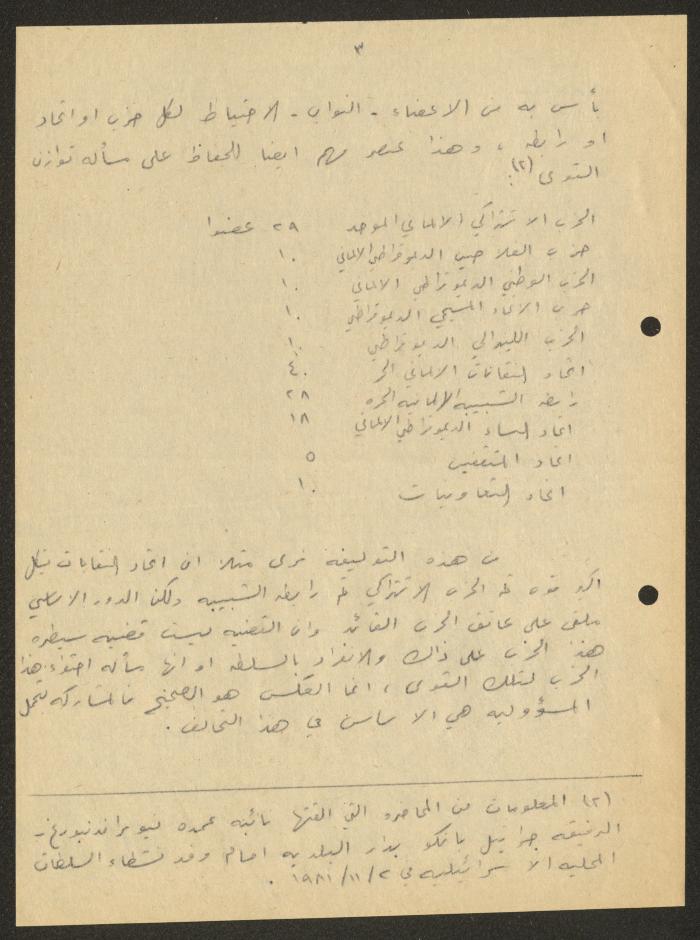 ٣
بأس به من الاعضاء - النواب - الاحتياط لكل حزب او اتحاد
او رابطه ، وهذا عنصر مهم ايضا للحفاظ على مسأله توازن
القوى (٢).
الحزب الاشتراكي الالماني الموحد ٢٩ عضوا
حزب الفلاحين الديموقراطي الالماني ١٠
الحزب الوطني الديموقراطي الالماني ١٠
حزب الاتحاد المسيحي الديموقراطي ١٠
الحزب الليبرالي الديموقراطي ١٠
اتحاد النقابات الالماني الحر ٤٠
رابطه الشبيبه الالمانيه الحره ٢٨
اتحاد النساء الديموقراطي الالماني ١٨
اتحاد المثقفين ٥
اتحاد التعاونيات ١٠
من هذه التوليفه نرى مثلا ان اتحاد النقابات يشكل
اكبر قوه ثم الحزب الاشتراكي ثم رابطه الشبيبه ولكن الدور الاساسي
ملقى على عاتق الحزب القائد وان القضيه ليست قضيه سيطره
هذا الحزب على ذاك والانفراد بالسلطه او انها مسأله احتواء هذا
الحزب لتلك القوى ، انما العكس هو الصحيح فالمشاركه بتحمل
المسؤوليه هي الاساس في هذا التحالف .
(٢) المعلومات من المحاضره التي القتها نائبه عمده نيوبراندنبورغ -
الرفيقه جبرائيل يانكو بدار البلديه امام وفد نشطاء السلطات
المحليه الاسرائيليه في ٢/١١/١٩٨١ .